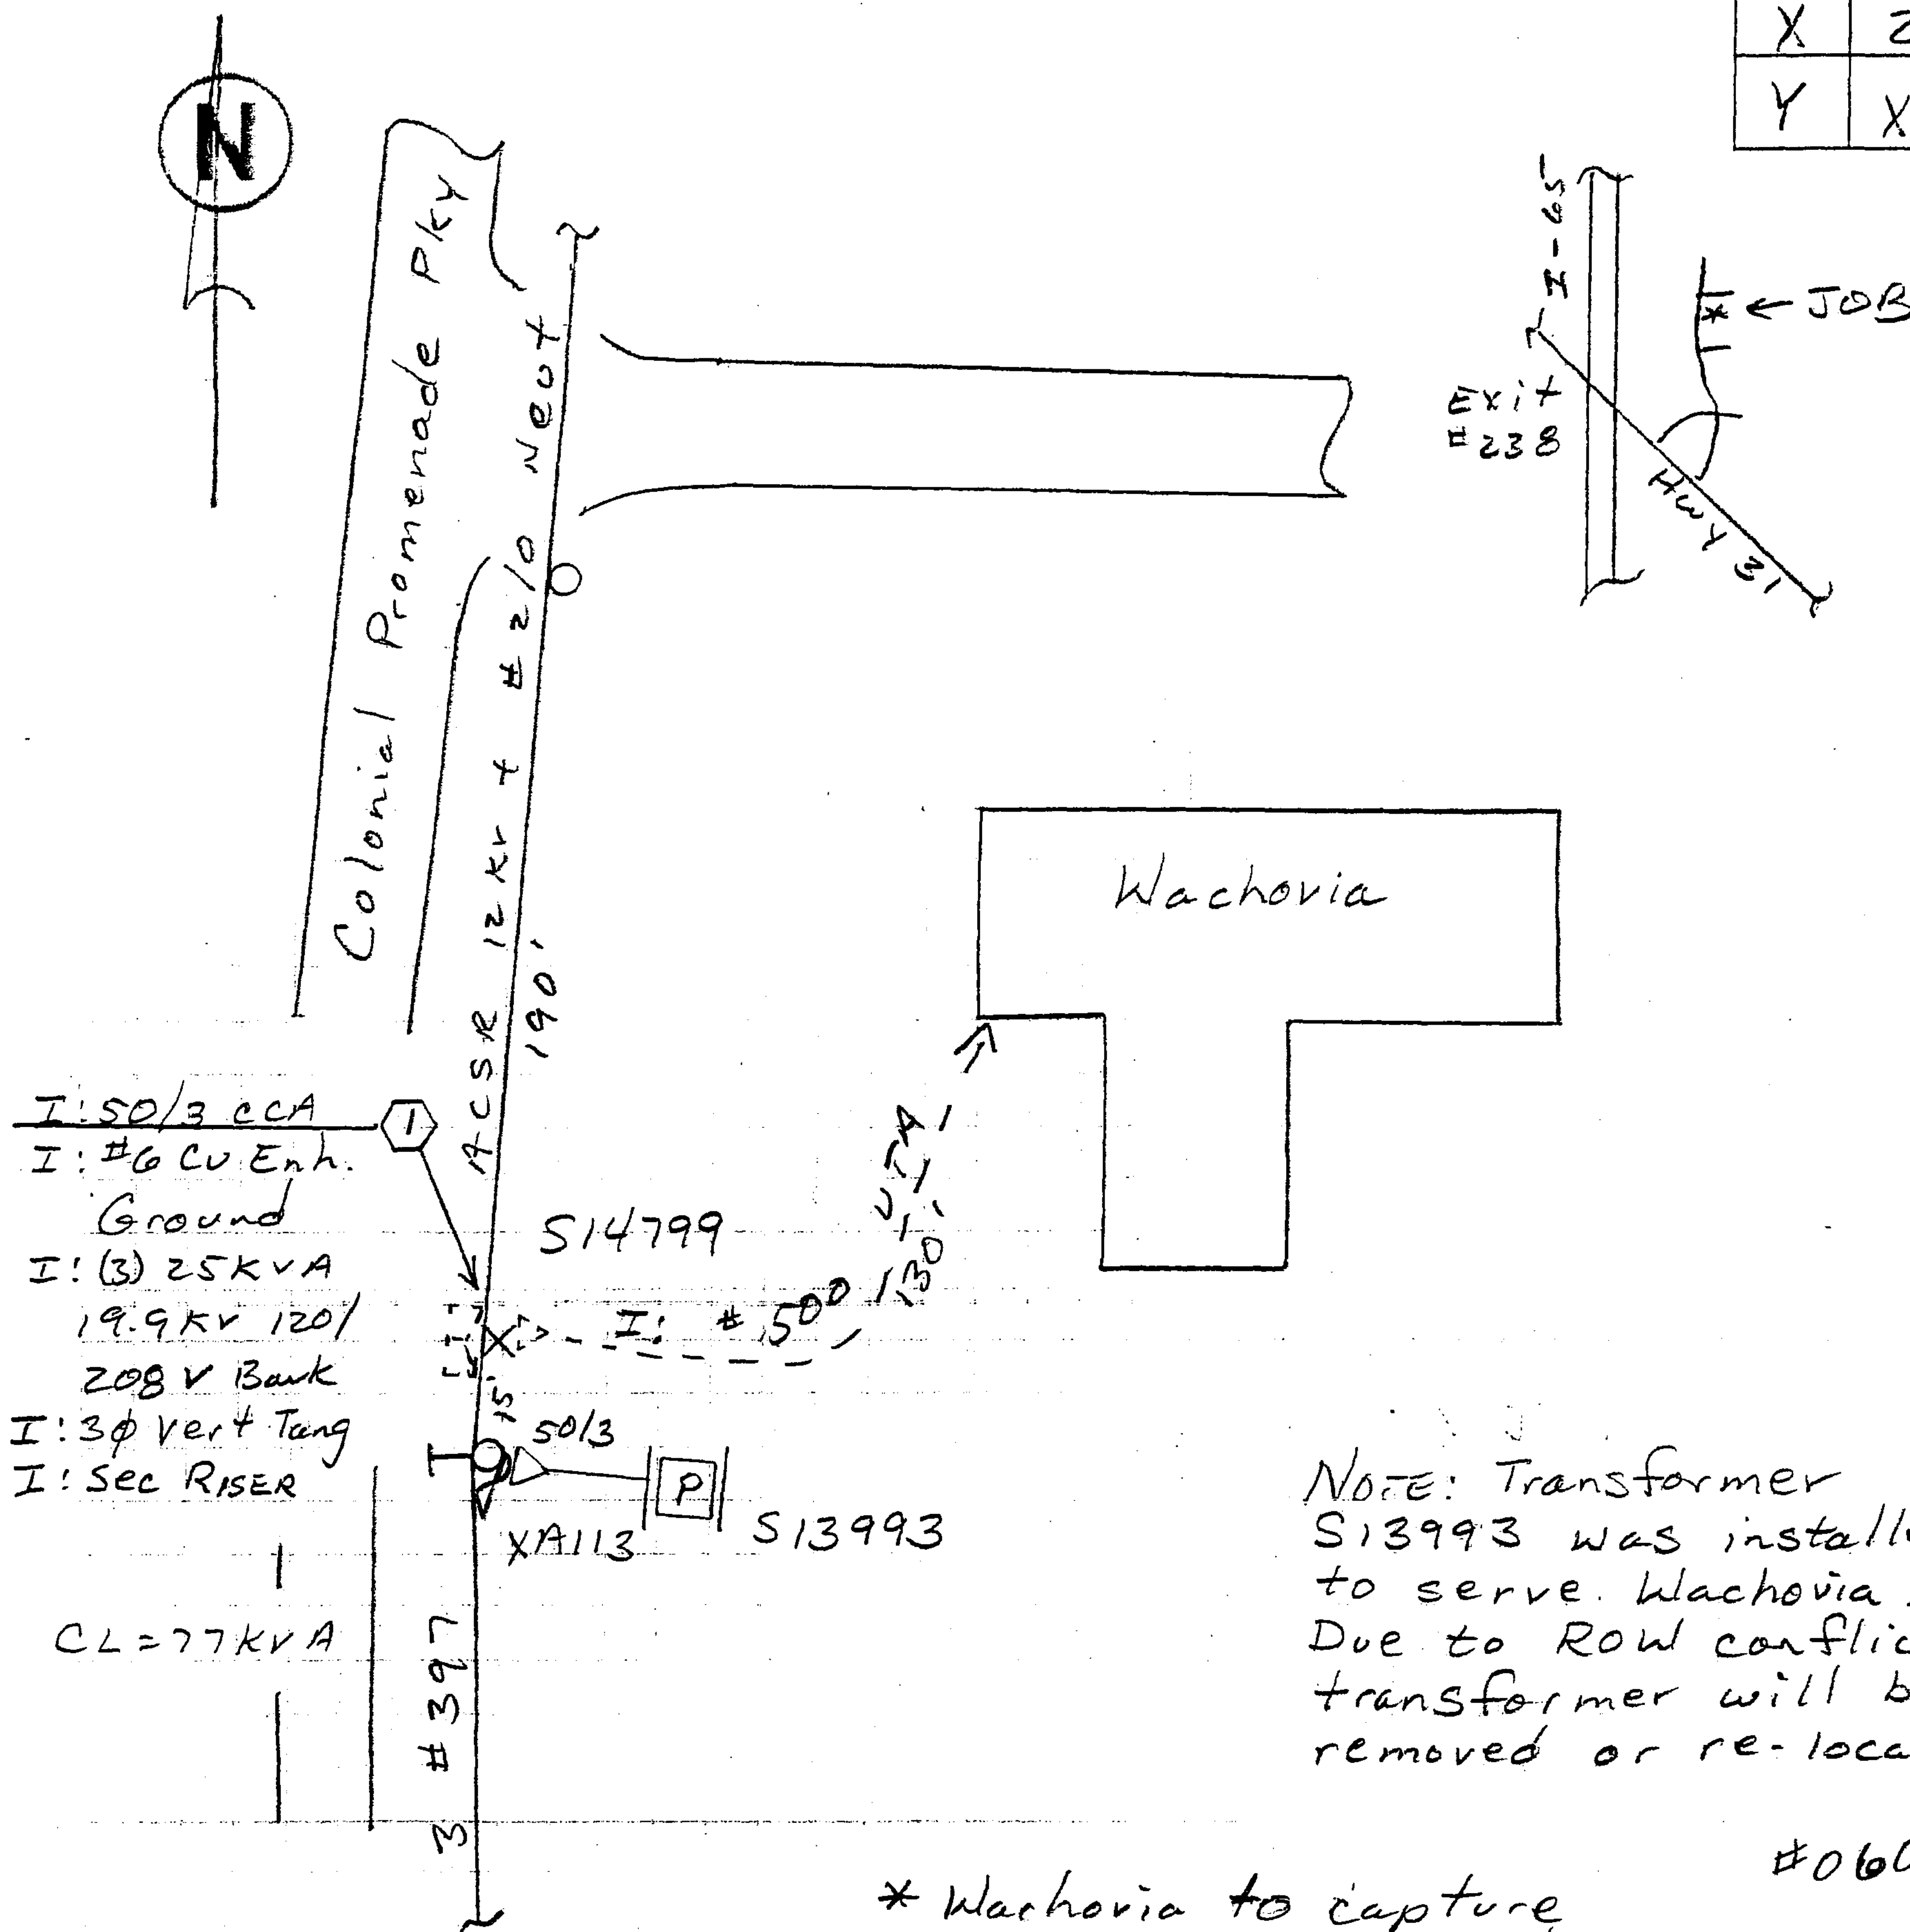 N
X
Y X
Colonial Promenade Pky
3 #397 ACSR 12 kv + #2/0 Neut
190'
I-65
* ← JOB
Exit
#238
Hwy 31
Wachovia
I: 50/3 CCA
1
I: #6 Cu Enh.
Ground
I: (3) 25 KVA
19.9 KV 120/
208 V Bank
I: 3ϕ Vert Tang
I: Sec RISER
CL = 77 KVA
S14799
X
I: #500
130'
15'
50/3
P
XA113
S13993
NOTE: Transformer
S13993 was
to serve Wachovia.
Due to ROW
transformer will
removed or
* Wachovia to capture